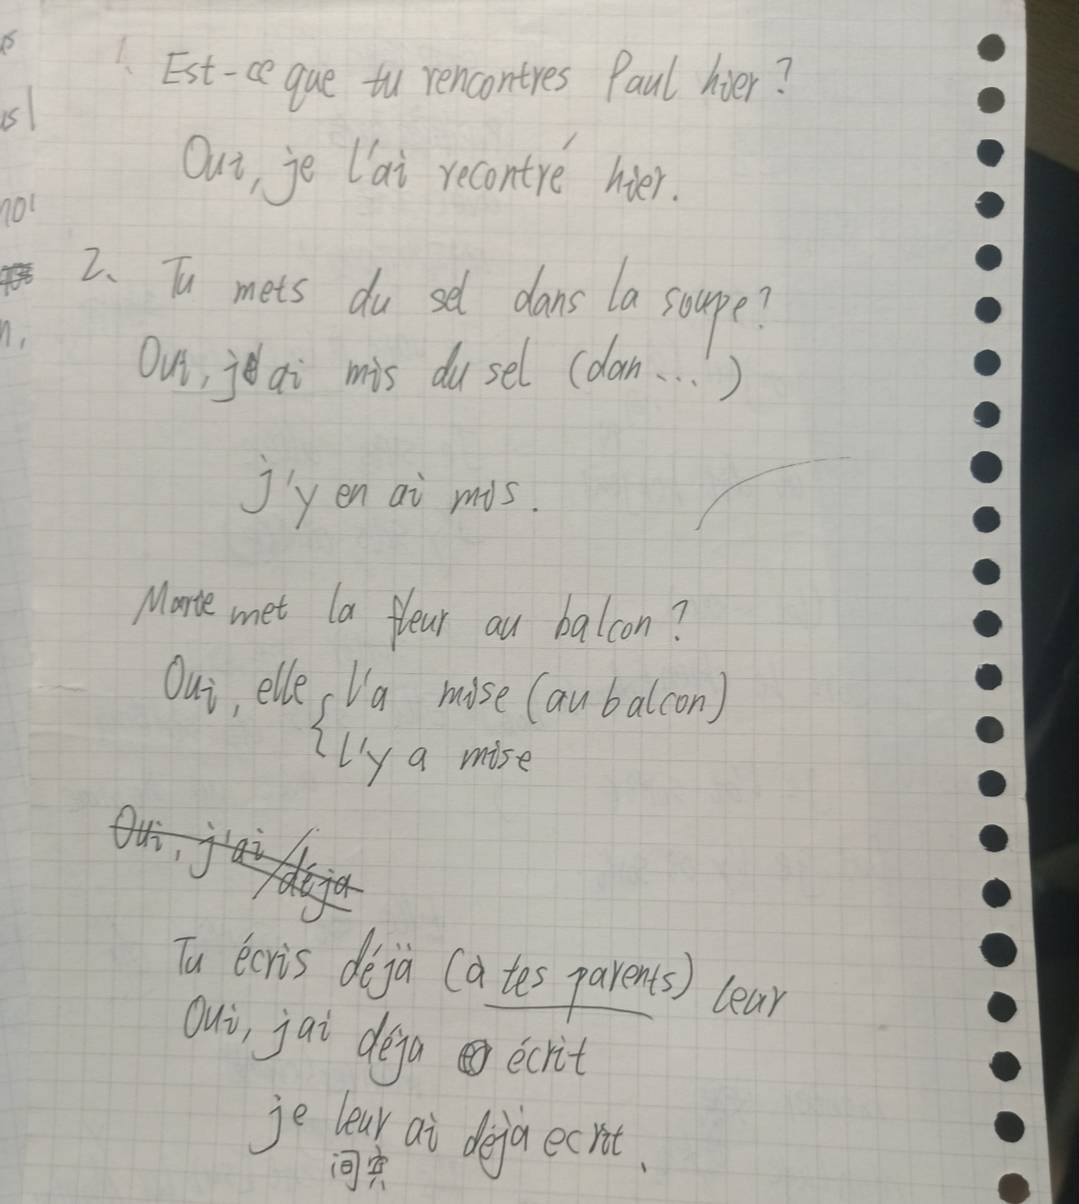 1. Est-ce que tu rencontres Paul hier?
Oui, je l'ai recontré hier.
2、 Tu mets du sel dans la soupe?
Oui, j ai mis du sel (dan...)
j'y en ai mis.
met la fleur au balcon?
Oui, elle { l'a mise (au balcon)
l'y a mise
Oui, j'ai / déja
Tu écris déjà (à tes parents) leur
Oui, jai déja écrit
je leur ai déjà ecrit.
间宾